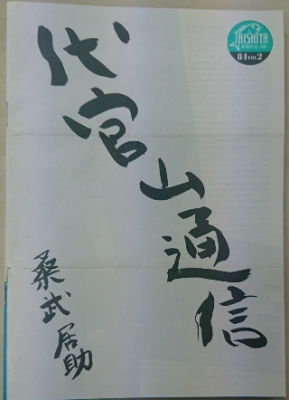 代官山通信
桑武居助
AISHITA
84 VOL.2